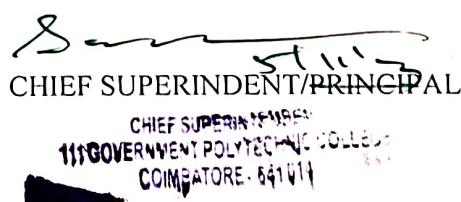 CHIEF SUPERINDENT/PRINCIPAL
CHIEF SUPERINTENDENT
111 GOVERNMENT POLYTECHNIC COLLEGE
COIMBATORE - 641014